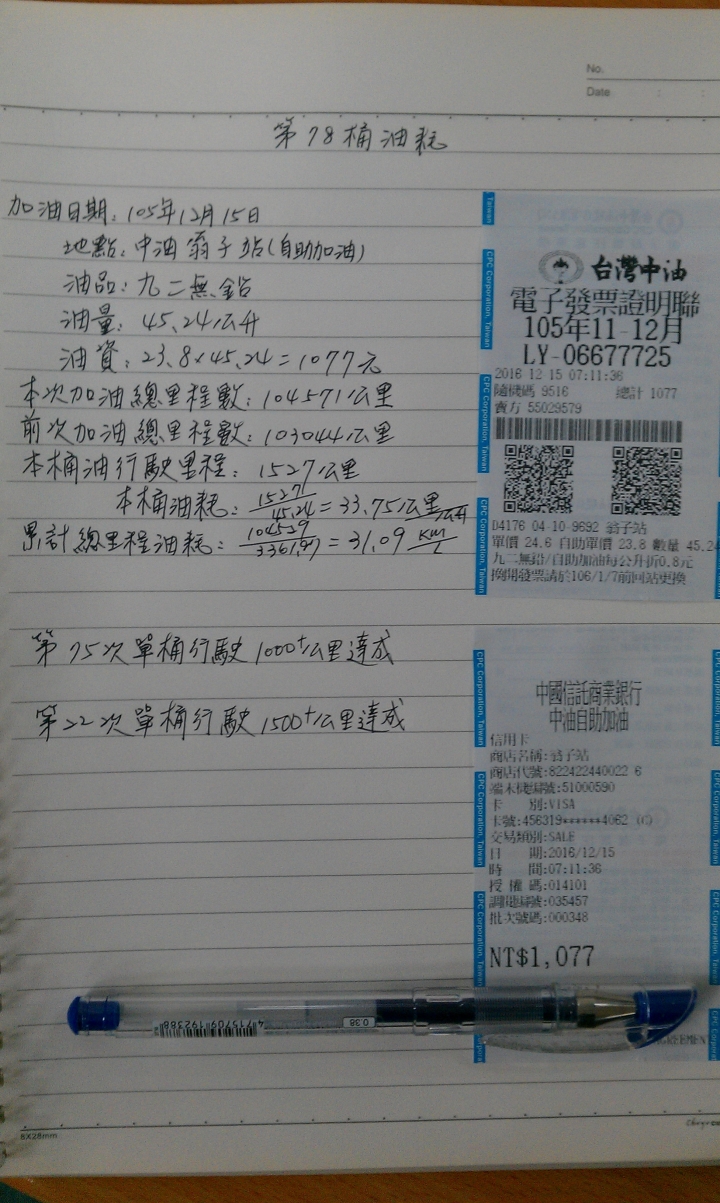 No.
Date
第78桶油耗
加油日期：105年12月15日
地點：中油翁子站(自助加油)
油品：九二無鉛
油量：45.24公升
油資：23.8×45.24=1077元
本次加油總里程數：104571公里
前次加油總里程數：103044公里
本桶油行駛里程：1527公里
本桶油耗：1527/45.24=33.75公里/公升
累計總里程油耗：104539/3361.97=31.09 KM/L
第75次單桶行駛1000+公里達成
第22次單桶行駛1500+公里達成
Taiwan
CPC Corporation, Taiwan
台灣中油
電子發票證明聯
105年11-12月
LY-06677725
2016 12 15 07:11:36
隨機碼 9516 總計 1077
賣方 55029579
D4176 04-10-9692 翁子站
單價 24.6 自助單價 23.8 數量 45.24
九二無鉛/自助加油每公升折0.8元
換開發票請於106/1/7前回站更換
中國信託商業銀行
中油自助加油
信用卡
商店名稱:翁子站
商店代號:822422440022 6
端末機編號:51000590
卡 別:VISA
卡號:456319******4062
交易類別:SALE
日 期:2016/12/15
時 間:07:11:36
授權碼:014101
調閱編號:035457
批次號碼:000348
NT$1,077
4715709192388
0.38
8X28mm